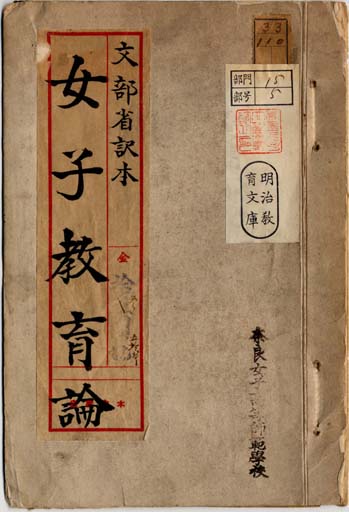 文部省訳本
女子教育論
全
33
110
部門 15
部号 5
明治教
育文庫
奈良女子高等師範學校